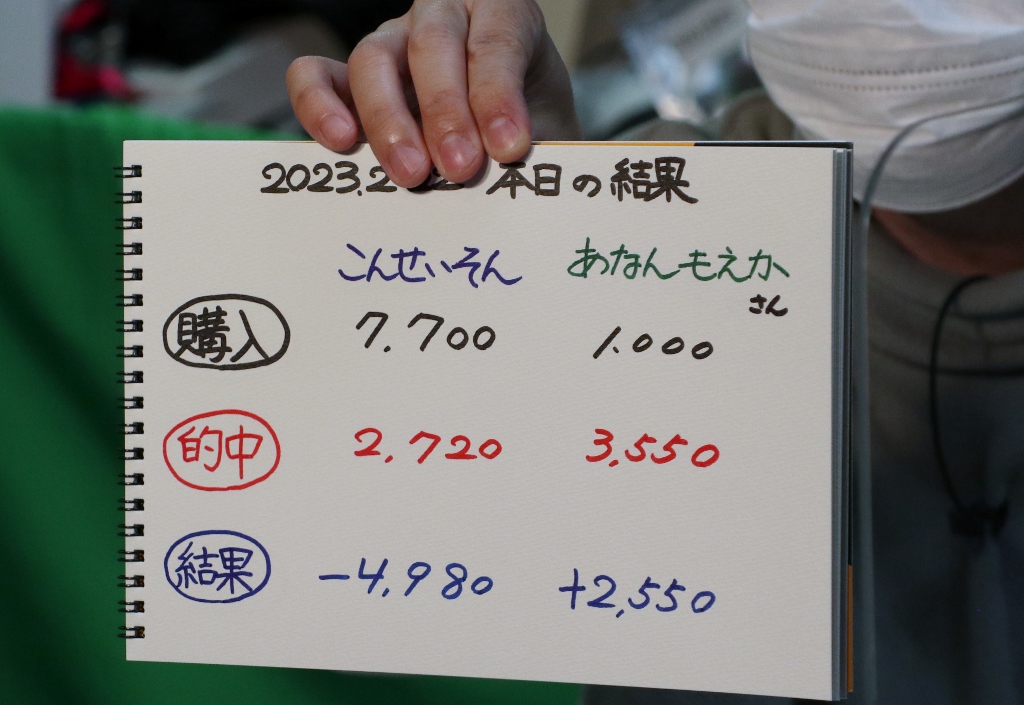 2023.2 本日の結果
こんせいそん あなんもえか
さん
購入 7.700 1.000
的中 2,720 3,550
結果 -4,980 +2,550